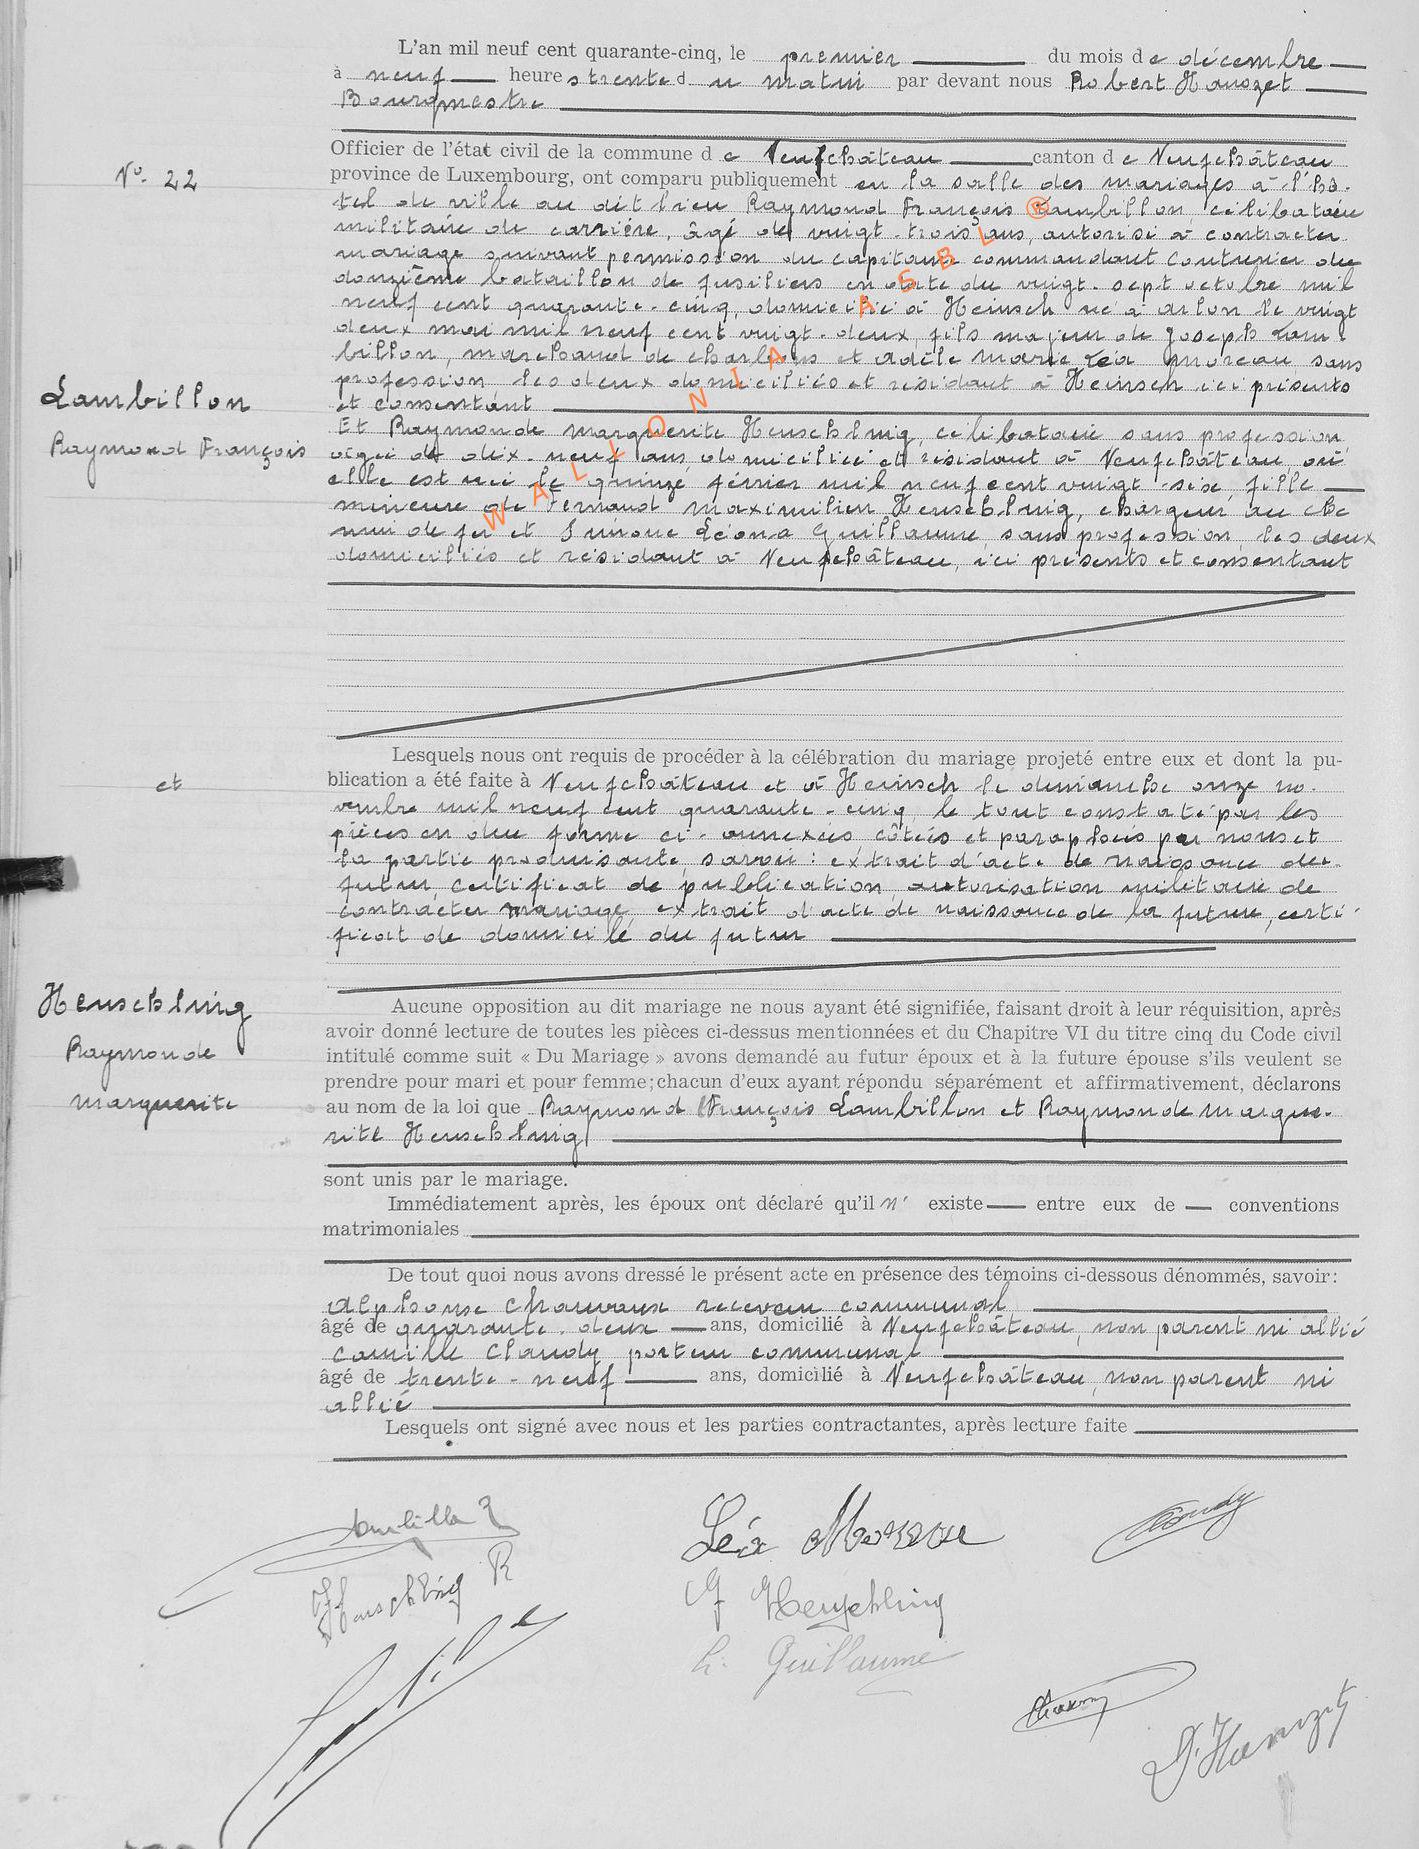 L'an mil neuf cent quarante-cinq, le premier du mois de décembre
à neuf heures trente du matin par devant nous Robert Hanozet
Bourgmestre
Officier de l'état civil de la commune de Neufchâteau canton de Neufchâteau
N° 22
province de Luxembourg, ont comparu publiquement en la salle des mariages à l'hô-
tel de ville au dit lieu Raymond François Lambillon célibataire
militaire de carrière, âgé de vingt-trois ans, autorisé à contracter
mariage suivant permission du capitaine commandant du
douzième bataillon de fusiliers en date du vingt-sept octobre mil
neuf cent quarante-cinq, domicilié à Heinsch né à Arlon le vingt
deux mai mil neuf cent vingt-deux, fils majeur de Joseph Lam
billon, marchand de charbons et Adèle Marie Léa Moreau sans
profession les deux domiciliés et résidant à Heinsch ici présents
et consentant
Lambillon
Raymond François
Et Raymonde Marguerite Heuschling, célibataire sans profession
âgée de dix-neuf ans domiciliée et résidant à Neufchâteau où
elle est née le quinze février mil neuf cent vingt-six, fille
mineure de Fernand Maximilien Heuschling, chargeur au che
min de fer et Léona Guillaume, sans profession, les deux
domiciliés et résidant à Neufchâteau, ici présents et consentant
WALLONIA ASBL ®
Lesquels nous ont requis de procéder à la célébration du mariage projeté entre eux et dont la pu-
et
blication a été faite à Neufchâteau et à Heinsch le dimanche onze no-
vembre mil neuf cent quarante-cinq, le tout constaté par les
pièces en due forme ci-annexées côtées et paraphées par nous et
la partie produisante savoir : extrait d'acte de naissance du
futur, certificat de publication, autorisation militaire de
contracter mariage, extrait d'acte de naissance de la future, certi-
ficat de domicile du futur
Heuschling
Raymonde
Marguerite
Aucune opposition au dit mariage ne nous ayant été signifiée, faisant droit à leur réquisition, après
avoir donné lecture de toutes les pièces ci-dessus mentionnées et du Chapitre VI du titre cinq du Code civil
intitulé comme suit « Du Mariage » avons demandé au futur époux et à la future épouse s'ils veulent se
prendre pour mari et pour femme; chacun d'eux ayant répondu séparément et affirmativement, déclarons
au nom de la loi que Raymond François Lambillon et Raymonde Margue-
rite Heuschling
sont unis par le mariage.
Immédiatement après, les époux ont déclaré qu'il n' existe entre eux de conventions
matrimoniales
De tout quoi nous avons dressé le présent acte en présence des témoins ci-dessous dénommés, savoir:
Alphonse Chauvaux receveur communal
âgé de quarante-deux ans, domicilié à Neufchâteau, non parent ni allié
Camille Claudy porteur communal
âgé de trente-neuf ans, domicilié à Neufchâteau, non parent ni
allié
Lesquels ont signé avec nous et les parties contractantes, après lecture faite
Léa Moreau
Claudy
Heuschling R
F Heuschling
L. Guillaume
R. Hanozet